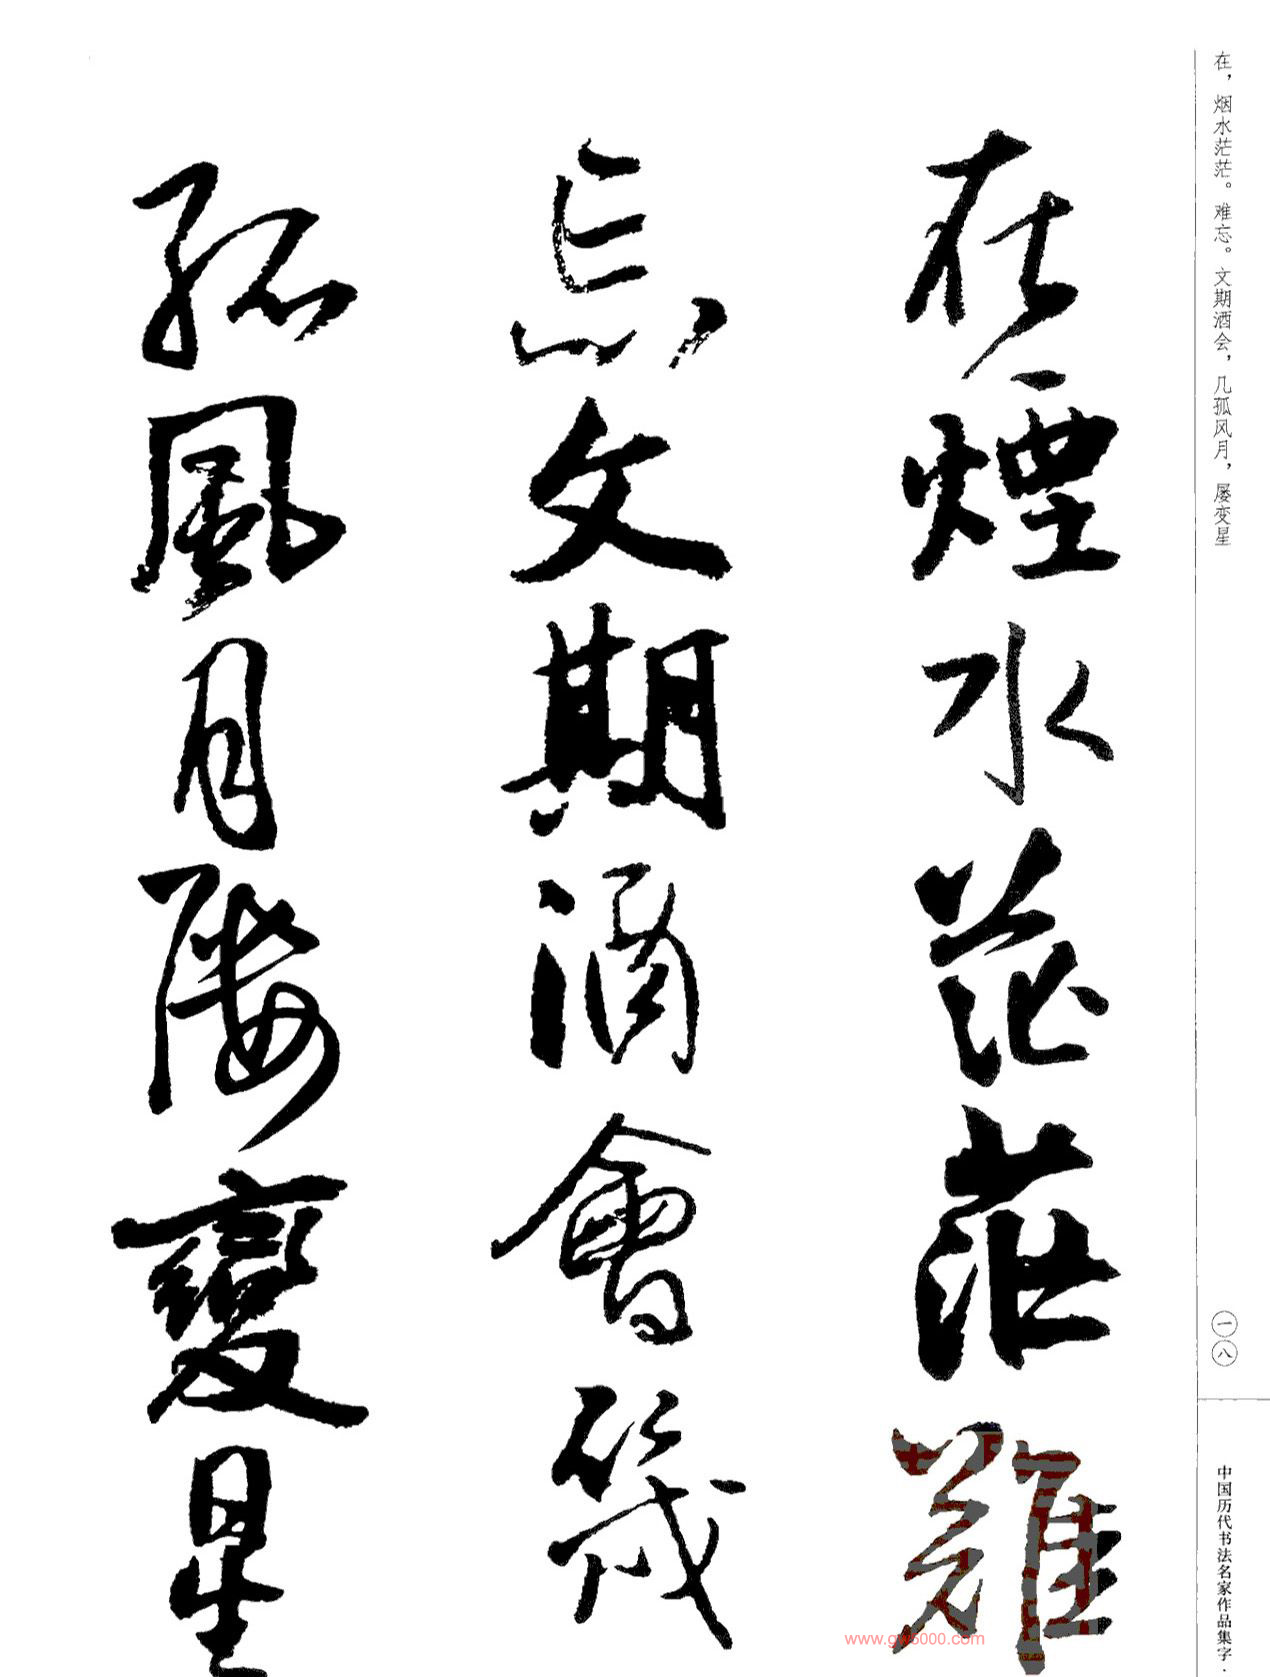 在，烟水茫茫。难忘。文期酒会，几孤风月，屡变星
在煙水茫茫難
忘文期酒會幾
孤風月屢變星
一八
中国历代书法名家作品集字·
www.gw5000.com